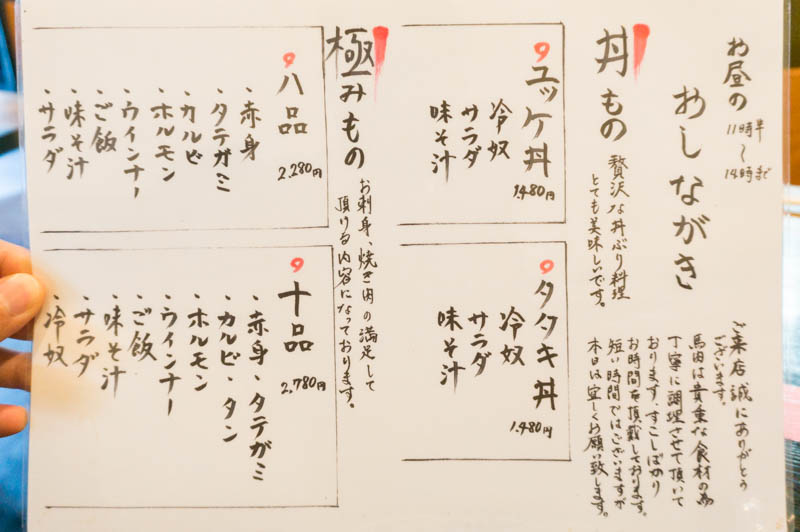 お昼の
11時半〜14時まで
おしながき
ご来店誠にありがとう
ございます。
馬肉は貴重な食材の為
丁寧に調理させて頂いて
おります。すこしばかり
お時間を頂戴しております。
短い時間ではございますが
本日は宜しくお願い致します。
丼もの
贅沢な丼ぶり料理
とても美味しいです。
ユッケ丼
1,480円
冷奴
サラダ
味そ汁
タタキ丼
1,480円
冷奴
サラダ
味そ汁
極みもの
お刺身、焼き肉の満足して
頂ける内容になっております。
八品
2,280円
・赤身
・タテガミ
・カルビ
・ホルモン
・ウインナー
・ご飯
・味そ汁
・サラダ
十品
2,780円
・赤身・タテガミ
・カルビ・タン
・ホルモン
・ウインナー
・ご飯
・味そ汁
・サラダ
・冷奴